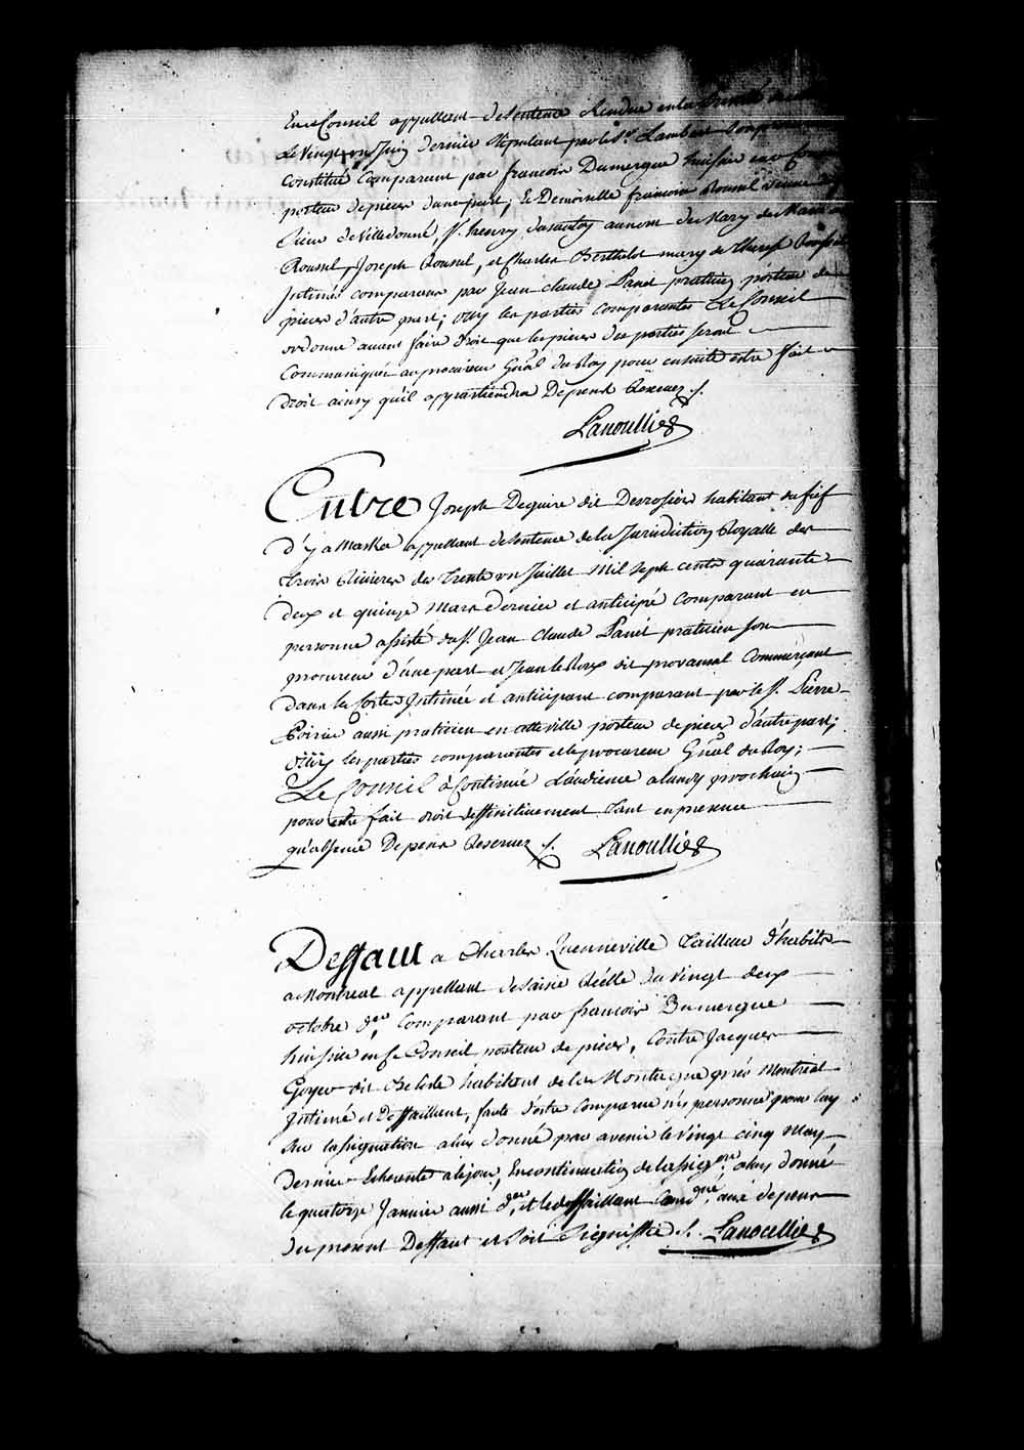 En ce Conseil appellant de sentence Rendue en la
Le Vingt un Juin dernier Stipulant par le Sr. Lambert
Constitué Comparant par francois Dumergue huissier en ce
porteur de pieces d'une part; Et Demoiselle francoise Roussel Veuve
Sieur de Villedonné, Sr. henry aunom de Mary
Roussel, Joseph Roussel, et Charles Berthelot mary de
Intimés comparans par Jean claude Panet praticien porteur de
pieces d'autre part; ouy les parties comparantes Le Conseil
ordonne avant faire droit que les pieces des parties seront
Communiquées au procureur Gnâl du Roy pour ensuite estre fait
droit ainsy qu'il appartiendra Depens Reservez ./.
Lanoullier
Entre Joseph Deguire dit Desrosier habitant du fief
d'yamaska appellant de sentence de la Jurisdiction Royalle des
trois Rivieres des trente un Juillet mil sept cents quarante
deux et quinze mars dernier et anticipé Comparant en
personne assisté du Sr. Jean Claude Panet praticien son
procureur d'une part et Jean le Roux dit provansal Commerçant
dans les Costes Intimé et anticipant comparant par le Sr. Pierre
Poirier aussi praticien en cette ville porteur de pieces d'autre part;
Oüy les parties comparantes et le procureur Gnâl du Roy;
Le Conseil à Continué L'audience a lundy prochain
pour estre fait droit deffinitivement tant en presence
qu'absence Depens Reservez ./. Lanoullier
Deffaut a Charles Quenneville Tailleur d'habits
a Montreal appellant de saisie Réelle du vingt deux
octobre der. Comparant par francois Dumergue
huissier en ce Conseil porteur de pieces, Contre Jacques
Goyer dit Belisle habitant de la Montagne prés Montreal
Intimé et Deffaillant, faute d'estre comparu ny personne pour luy
sur l'assignation a luy donné par avenir le Vingt cinq May
dernier Echeante a ce jour, En continuation de l'assigon. a luy donné
le quatorze Janvier aussi der, et le deffaillant Condné. aux depens
du present Deffaut et Soit Signiffié ./. Lanoullier